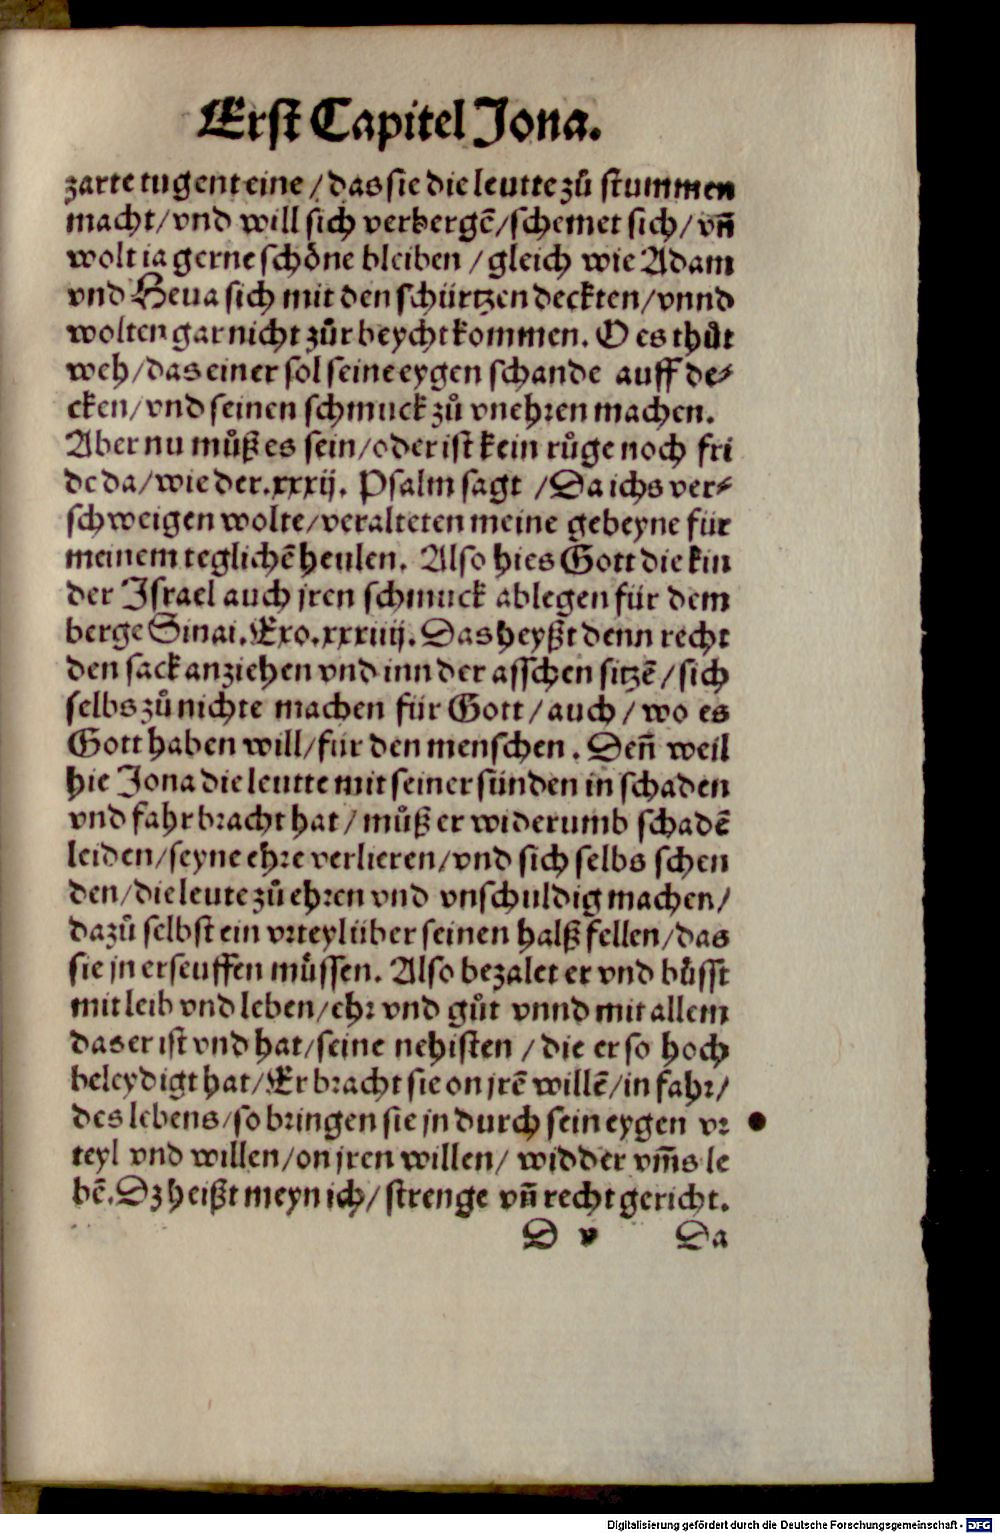 Erst Capitel Jona.
zarte tugent eine / das sie die leutte zů stummen
macht/vnd will sich verbergẽ/schemet sich/vñ
wolt ia gerne schöne bleiben /gleich wie Adam
vnd Heua sich mit den schürtzen deckten/vnnd
wolten gar nicht zůr beycht kommen. O es thůt
weh/das einer sol seine eygen schande auff de⸗
cken/vnd seinen schmuck zů vnehren machen.
Aber nu můß es sein/oder ist kein růge noch fri
de da/wie der.xxxij. Psalm sagt /Da ichs ver⸗
schweigen wolte/veralteten meine gebeyne für
meinem teglichẽ heulen. Also hies Gott die kin
der Israel auch jren schmuck ablegen für dem
berge Sinai.Exo.xxxiiij. Das heyßt denn recht
den sack anziehen vnd inn der asschen sitzẽ /sich
selbs zů nichte machen für Gott/auch/wo es
Gott haben will/für den menschen. Deñ weil
hie Jona die leutte mit seiner sünden in schaden
vnd fahr bracht hat/ můß er widerumb schadẽ
leiden/seyne ehre verlieren/vnd sich selbs schen
den/die leute zů ehren vnd vnschuldig machen/
dazů selbst ein vrteyl über seinen halß fellen/das
sie jn erseuffen müssen. Also bezalet er vnd büsst
mit leib vnd leben/ehr vnd gůt vnnd mit allem
das er ist vnd hat/seine nehisten /die er so hoch
beleydigt hat/Er bracht sie on jrẽ willẽ/in fahr/
des lebens/so bringen sie jn durch sein eygen vr
teyl vnd willen/on jren willen/ widder vm̃s le
bẽ. Dz heißt meyn ich/ strenge vñ recht gericht.
D v Da
Digitalisierung gefördert durch die Deutsche Forschungsgemeinschaft - DFG